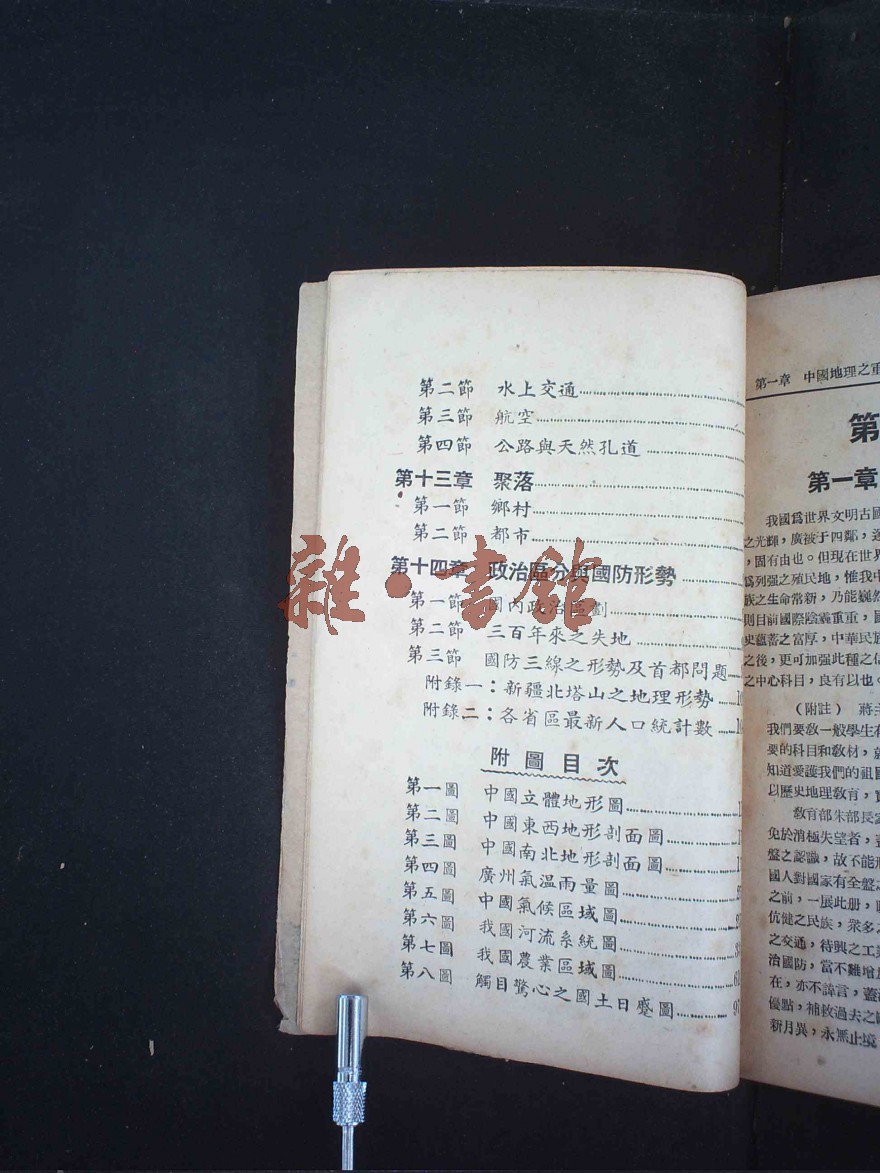 第二節 水上交通
第三節 航空
第四節 公路與天然孔道
第十三章 聚落
第一節 鄉村
第二節 都市
第十四章 政治區分與國防形勢
第一節 國內政治區劃
第二節 三百年來之失地
第三節 國防三線之形勢及首都問題
附錄一：新疆北塔山之地理形勢
附錄二：各省區最新人口統計數
附圖目次
第一圖 中國立體地形圖
第二圖 中國東西地形剖面圖
第三圖 中國南北地形剖面圖
第四圖 廣州氣溫雨量圖
第五圖 中國氣候區域圖
第六圖 我國河流系統圖
第七圖 我國農業區域圖
第八圖 觸目驚心之國土日蹙圖
雜·書館
第一章 中國地理之重
第
第一章
我國爲世界文明古國
之光輝，廣被于四鄰，
，固有由也。但現在世界
爲列强之殖民地，惟我中
族之生命常新，乃能巍然
則目前國際陰霾重重，
史蘊蓄之富厚，中華民族
之後，更可加强此種之信
之中心科目，良有以也。
（附註） 蔣主
我們要敎一般學生在
要的科目和敎材，就
知道愛護我們的祖國
以歷史地理敎育，
敎育部朱部長家
免於消極失望者，
盤之認識，故不能形
國人對國家有全盤之
之前，一展此册，
伉健之民族，衆多之
之交通，待興之工業
治國防，當不難增加
在，亦不諱言，蓋
優點，補救過去之
新月異，永無止境